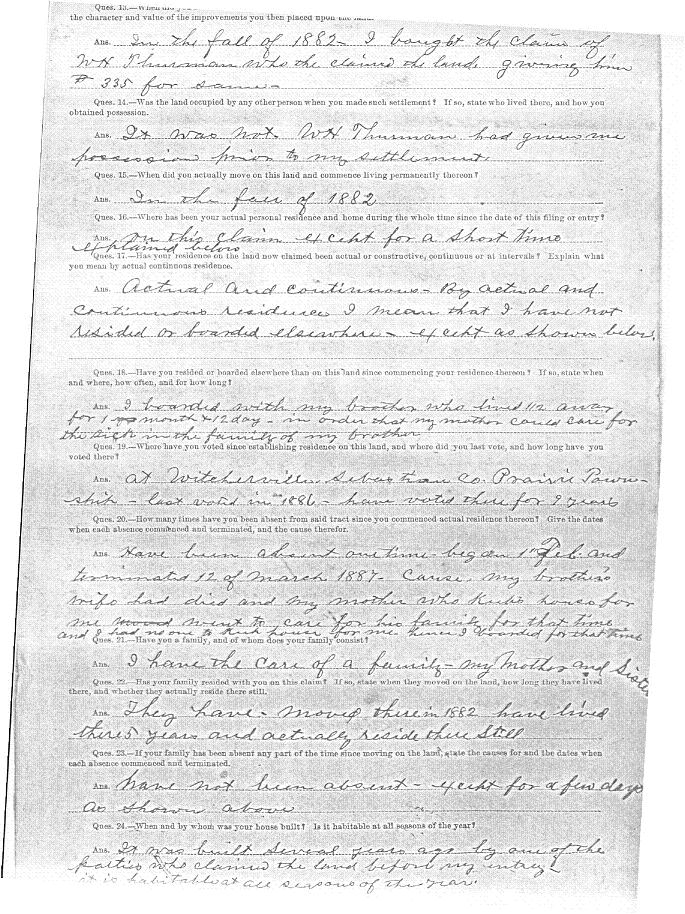 Ques. 13.—When did you
the character and value of the improvements you then placed upon the land.
Ans. In the fall of 1882 - I bought the claim of
WH Thurman who the claimed the land, giving him
$ 335 for same -
Ques. 14.—Was the land occupied by any other person when you made such settlement? If so, state who lived there, and how you
obtained possession.
Ans. It was not. WH Thurman had given me
possession prior to my settlement.
Ques. 15.—When did you actually move on this land and commence living permanently thereon?
Ans. In the fall of 1882
Ques. 16.—Where has been your actual personal residence and home during the whole time since the date of this filing or entry?
Ans. On this claim except for a short time
explained below
Ques. 17.—Has your residence on the land now claimed been actual or constructive, continuous or at intervals? Explain what
you mean by actual continuous residence.
Ans. Actual and continuous - By actual and
continuous residence I mean that I have not
resided or boarded elsewhere - except as shown below.
Ques. 18.—Have you resided or boarded elsewhere than on this land since commencing your residence thereon? If so, state when
and where, how often, and for how long?
Ans. I boarded with my brother who lived 1/2 away
for 1 month & 12 day - in order that my mother could care for
the sick in the family of my brother
Ques. 19.—Where have you voted since establishing residence on this land, and where did you last vote, and how long have you
voted there?
Ans. at Witcherville, Sebastian Co. Prairie Town-
ship - last voted in 1886 - have voted there for 9 years
Ques. 20.—How many times have you been absent from said tract since you commenced actual residence thereon? Give the dates
when each absence commenced and terminated, and the cause therefor.
Ans. Have been absent one time - began 1st Feb. and
terminated 12 of March 1887 - Cause, my brother's
wife had died and my mother who keeps house for
me went to care for his family for that time
and I had no one to keep house for me hence I boarded for that time
Ques. 21.—Have you a family, and of whom does your family consist?
Ans. I have the care of a family - my mother and Sister
Ques. 22.—Has your family resided with you on this claim? If so, state when they moved on the land, how long they have lived
there, and whether they actually reside there still.
Ans. They have - moved there in 1882 have lived
there 5 years and actually reside there still
Ques. 23.—If your family has been absent any part of the time since moving on the land, state the causes for and the dates when
each absence commenced and terminated.
Ans. have not been absent - except for a few days
as shown above
Ques. 24.—When and by whom was your house built? Is it habitable at all seasons of the year?
Ans. It was built several years ago by one of the
parties who claimed the land before my entry -
it is habitable at all seasons of the year.